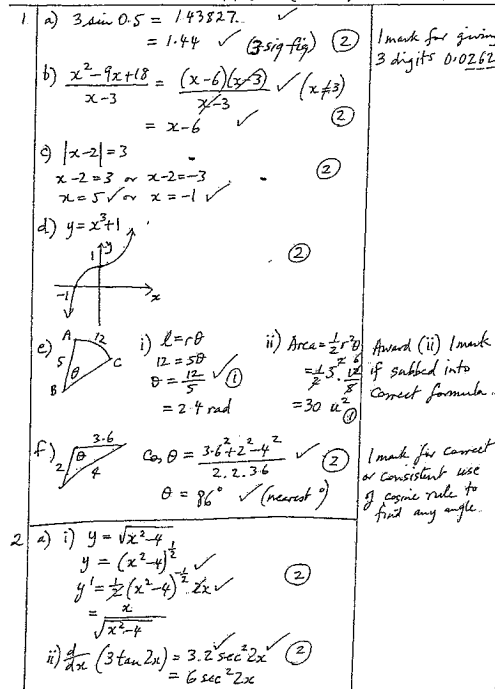 1 a) 3 sin 0.5 = 1.43827.. ✓
= 1.44 ✓ (3 sig fig) ②
1 mark for giving
3 digits 0.0262
b) x² − 9x + 18 / x − 3 = (x − 6)(x − 3) / x − 3 ✓ (x ≠ 3)
= x − 6 ✓ ②
c) |x − 2| = 3
x − 2 = 3 or x − 2 = −3 ②
x = 5 ✓ or x = −1 ✓
d) y = x³ + 1
y
1
②
−1
x
e) A 12
5 θ C
B
i) l = rθ
12 = 5θ
θ = 12/5 ✓ ①
= 2.4 rad
ii) Area = ½ r² θ
= ½ 5² . 12/5
= 30 u² ①
Award (ii) 1 mark
if subbed into
correct formula.
f) 3.6
2 θ 4
Cos θ = 3.6² + 2² − 4² / 2.2.3.6 ✓ ②
θ = 86° ✓ (nearest °)
1 mark for correct
or consistent use
of cosine rule to
find any angle.
2 a) i) y = √(x² − 4)
y = (x² − 4)^½ ✓
y' = ½ (x² − 4)^−½ . 2x ✓ ②
= x / √(x² − 4)
ii) d/dx (3 tan 2x) = 3.2 ✓ sec² 2x ✓ ②
= 6 sec² 2x